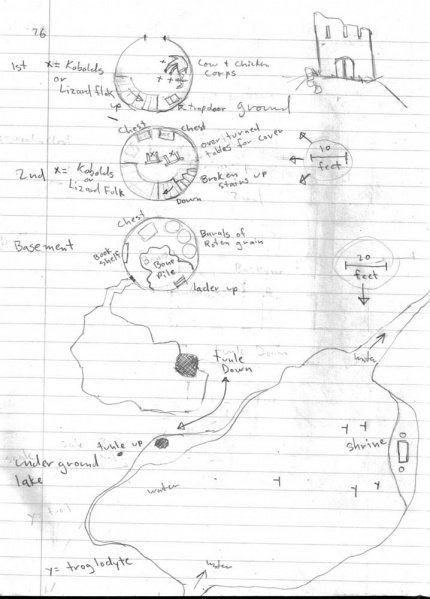 26
1st x = Kobolds
or
Lizard folk
Cow + Chicken
Corps
up
trapdoor ground
chest chest
overturned
tables for cover
10
feet
2nd x = Kobolds
or
Lizard Folk
Broken
stairs up
Down
Chest
Basement
Book
shelf
Burals of
Roten grain
Bone
Pile
lader up
20
feet
tunle
Down
water
tunle up
under ground
lake
shrine
water
y = troglodyte
water